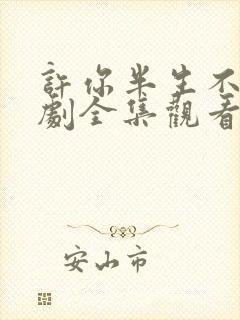 許你半生不
劇全集觀看
安山市